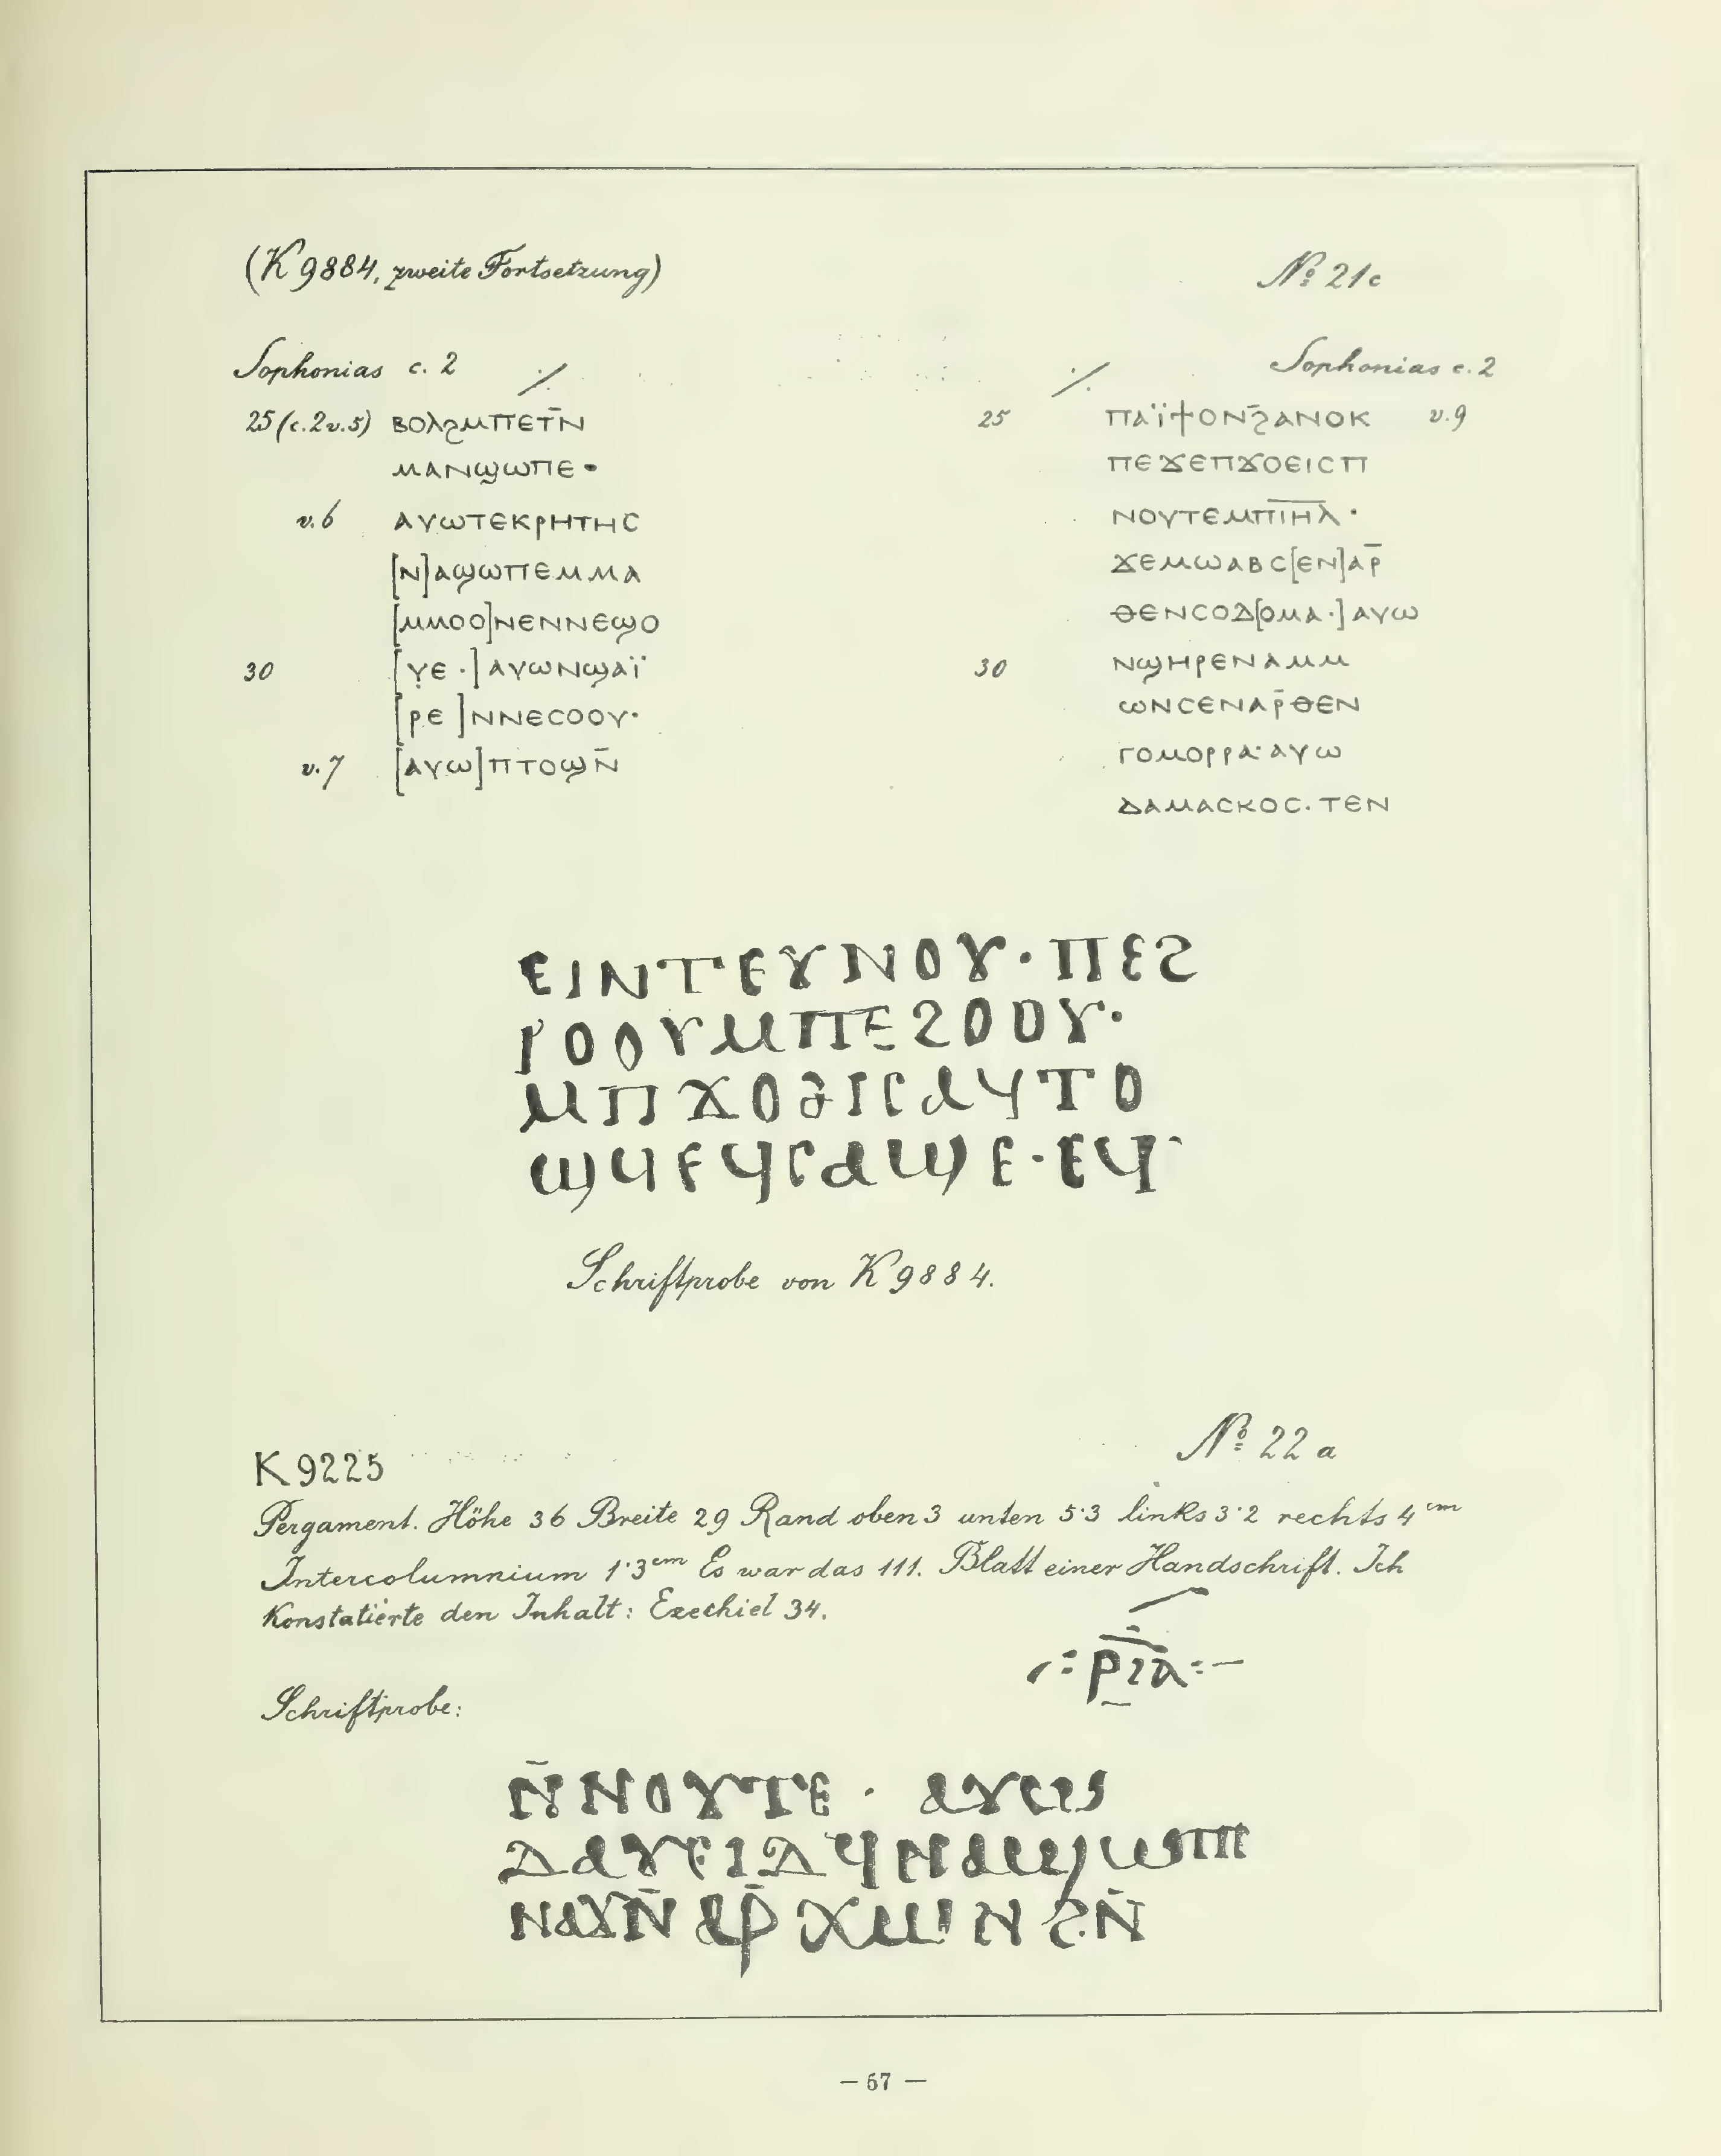 (K 9884, zweite Fortsetzung)
№ 21c
Sophonias c. 2 ⁒
25 (c. 2 v. 5) ⲃⲟⲗϩⲙⲡⲉⲧⲛ̄
ⲙⲁⲛϣⲱⲡⲉ·
v. 6 ⲁⲩⲱⲧⲉⲕⲣⲏⲧⲏⲥ
[ⲛ]ⲁϣⲱⲡⲉⲙⲙⲁ
[ⲙⲙⲟⲟ]ⲛⲉⲛⲛⲉϣⲟ
30 [ⲩⲉ·]ⲁⲩⲱⲛϣⲁⲓ̈
[ⲣⲉ]ⲛⲛⲉⲥⲟⲟⲩ·
v. 7 [ⲁⲩⲱ]ⲡⲧⲟϣⲛ̄
⁒ Sophonias c. 2
25 ⲡⲁⲓ̈ϯⲟⲛϩ̄ⲁⲛⲟⲕ v. 9
ⲡⲉϫⲉⲡϫⲟⲉⲓⲥⲡ
ⲛⲟⲩⲧⲉⲙⲡⲓ̅ⲏ̅ⲗ̅·
ϫⲉⲙⲱⲁⲃⲥ[ⲉⲛ]ⲁⲣ̄
ⲑⲉⲛⲥⲟⲇ[ⲟⲙⲁ·]ⲁⲩⲱ
30 ⲛϣⲏⲣⲉⲛⲁⲙⲙ
ⲱⲛⲥⲉⲛⲁⲣ̄ⲑⲉⲛ
ⲅⲟⲙⲟⲣⲣⲁ·ⲁⲩⲱ
ⲇⲁⲙⲁⲥⲕⲟⲥ·ⲧⲉⲛ
ⲉⲓⲛⲧⲉⲩⲛⲟⲩ·ⲡⲉϩ
ⲣⲟⲟⲩⲙⲡⲉϩⲟⲟⲩ·
ⲙⲡϫⲟⲉⲓⲥⲁⲩⲧⲟ
ϣϥⲉϥⲥⲁϣⲉ·ⲉϥ
Schriftprobe von K 9884.
№ 22 a
K 9225
Pergament. Höhe 36 Breite 29 Rand oben 3 unten 5·3 links 3·2 rechts 4 cm
Intercolumnium 1·3 cm Es war das 111. Blatt einer Handschrift. Ich
Konstatierte den Inhalt: Ezechiel 34.
ⲣⲓⲁ
Schriftprobe:
ⲛ̄ⲛⲟⲩⲧⲉ· ⲁⲩⲱ
ⲇⲁⲩⲉⲓⲇϥⲛⲁϣⲱⲡⲉ
ⲛⲁⲩⲛ̄ⲁⲣ̄ⲭⲱⲛϩⲛ̄
— 67 —